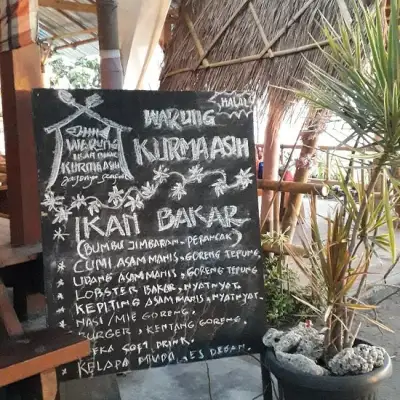 HALAL
WARUNG
KURMA ASIH
WARUNG
IKAN BAKAR
KURMA ASIH
IKAN BAKAR
(BUMBU JIMBARAN. PERANCAK)
* CUMI ASAM MANIS. GORENG TEPUNG
* UDANG ASAM MANIS. GORENG TEPUNG
* LOBSTER BAKAR. NYAT NYAT.
* KEPITING ASAM MANIS. NYAT NYAT.
* NASI / MIE GORENG.
BURGER. KENTANG GORENG.
SOFT DRINK.
* KELAPA MUDA. ES